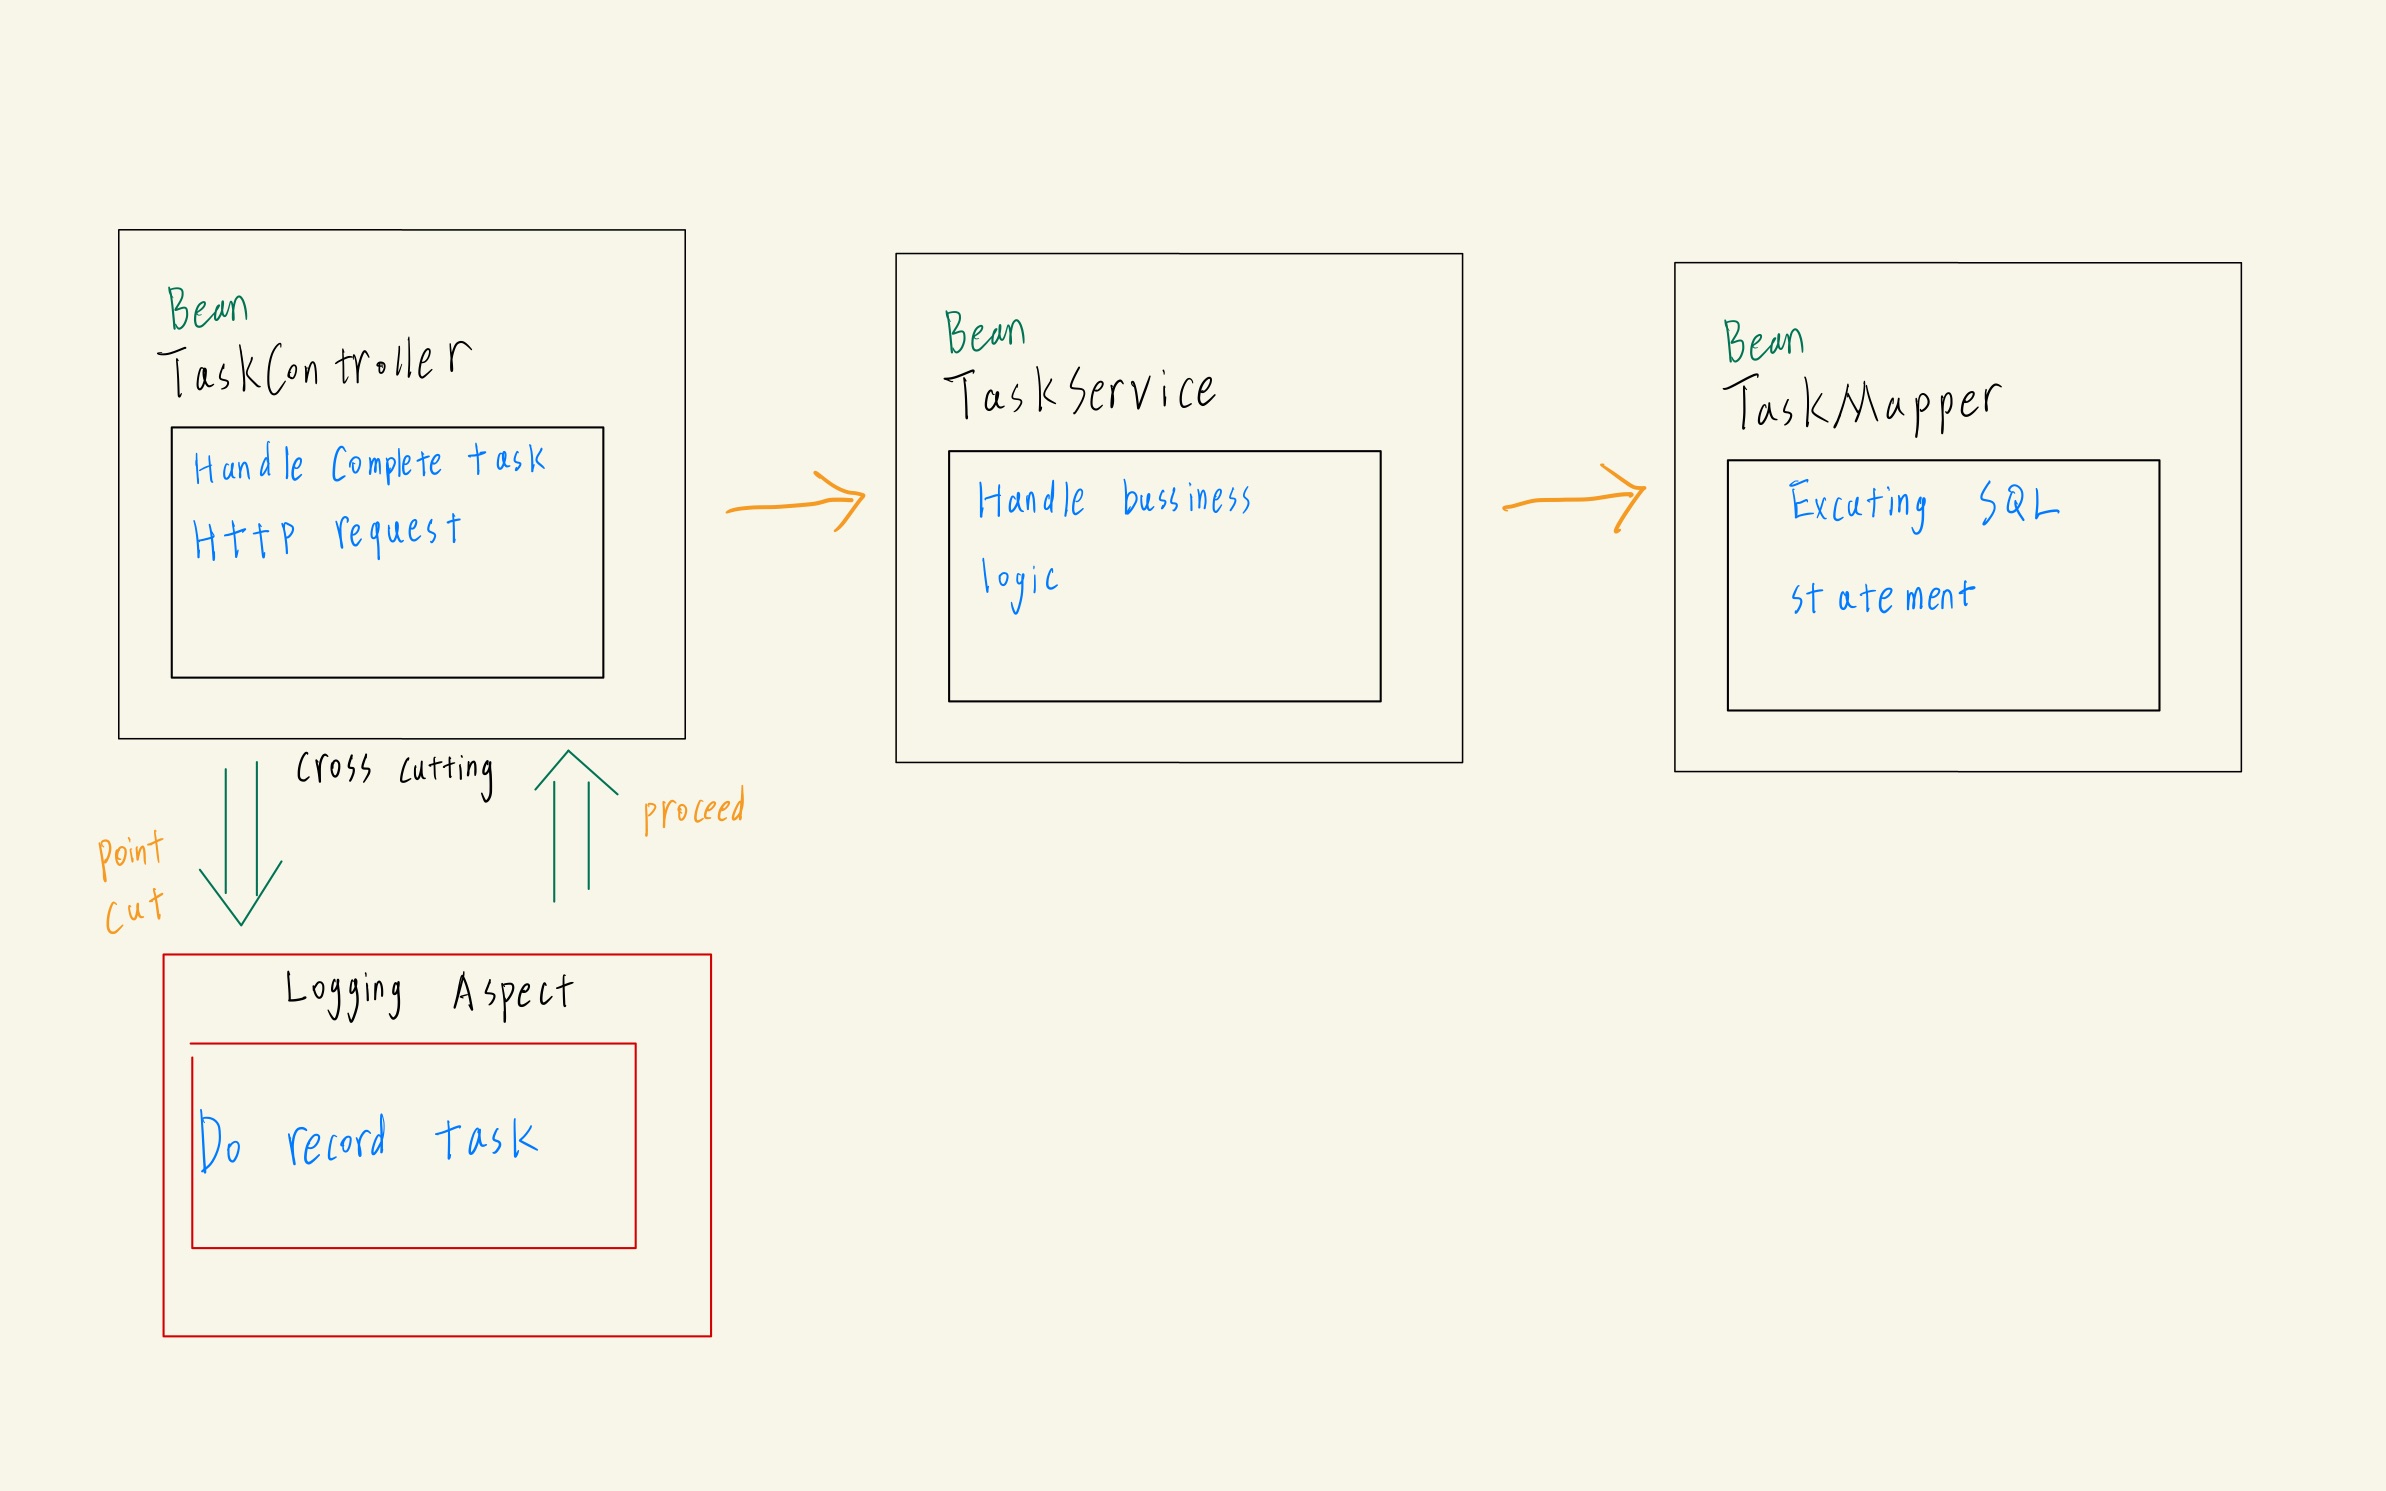 Bean
TaskController
Handle Complete task
Http request
Bean
TaskService
Handle bussiness
logic
Bean
TaskMapper
Excuting SQL
statement
Cross cutting
point
cut
proceed
Logging Aspect
Do record task